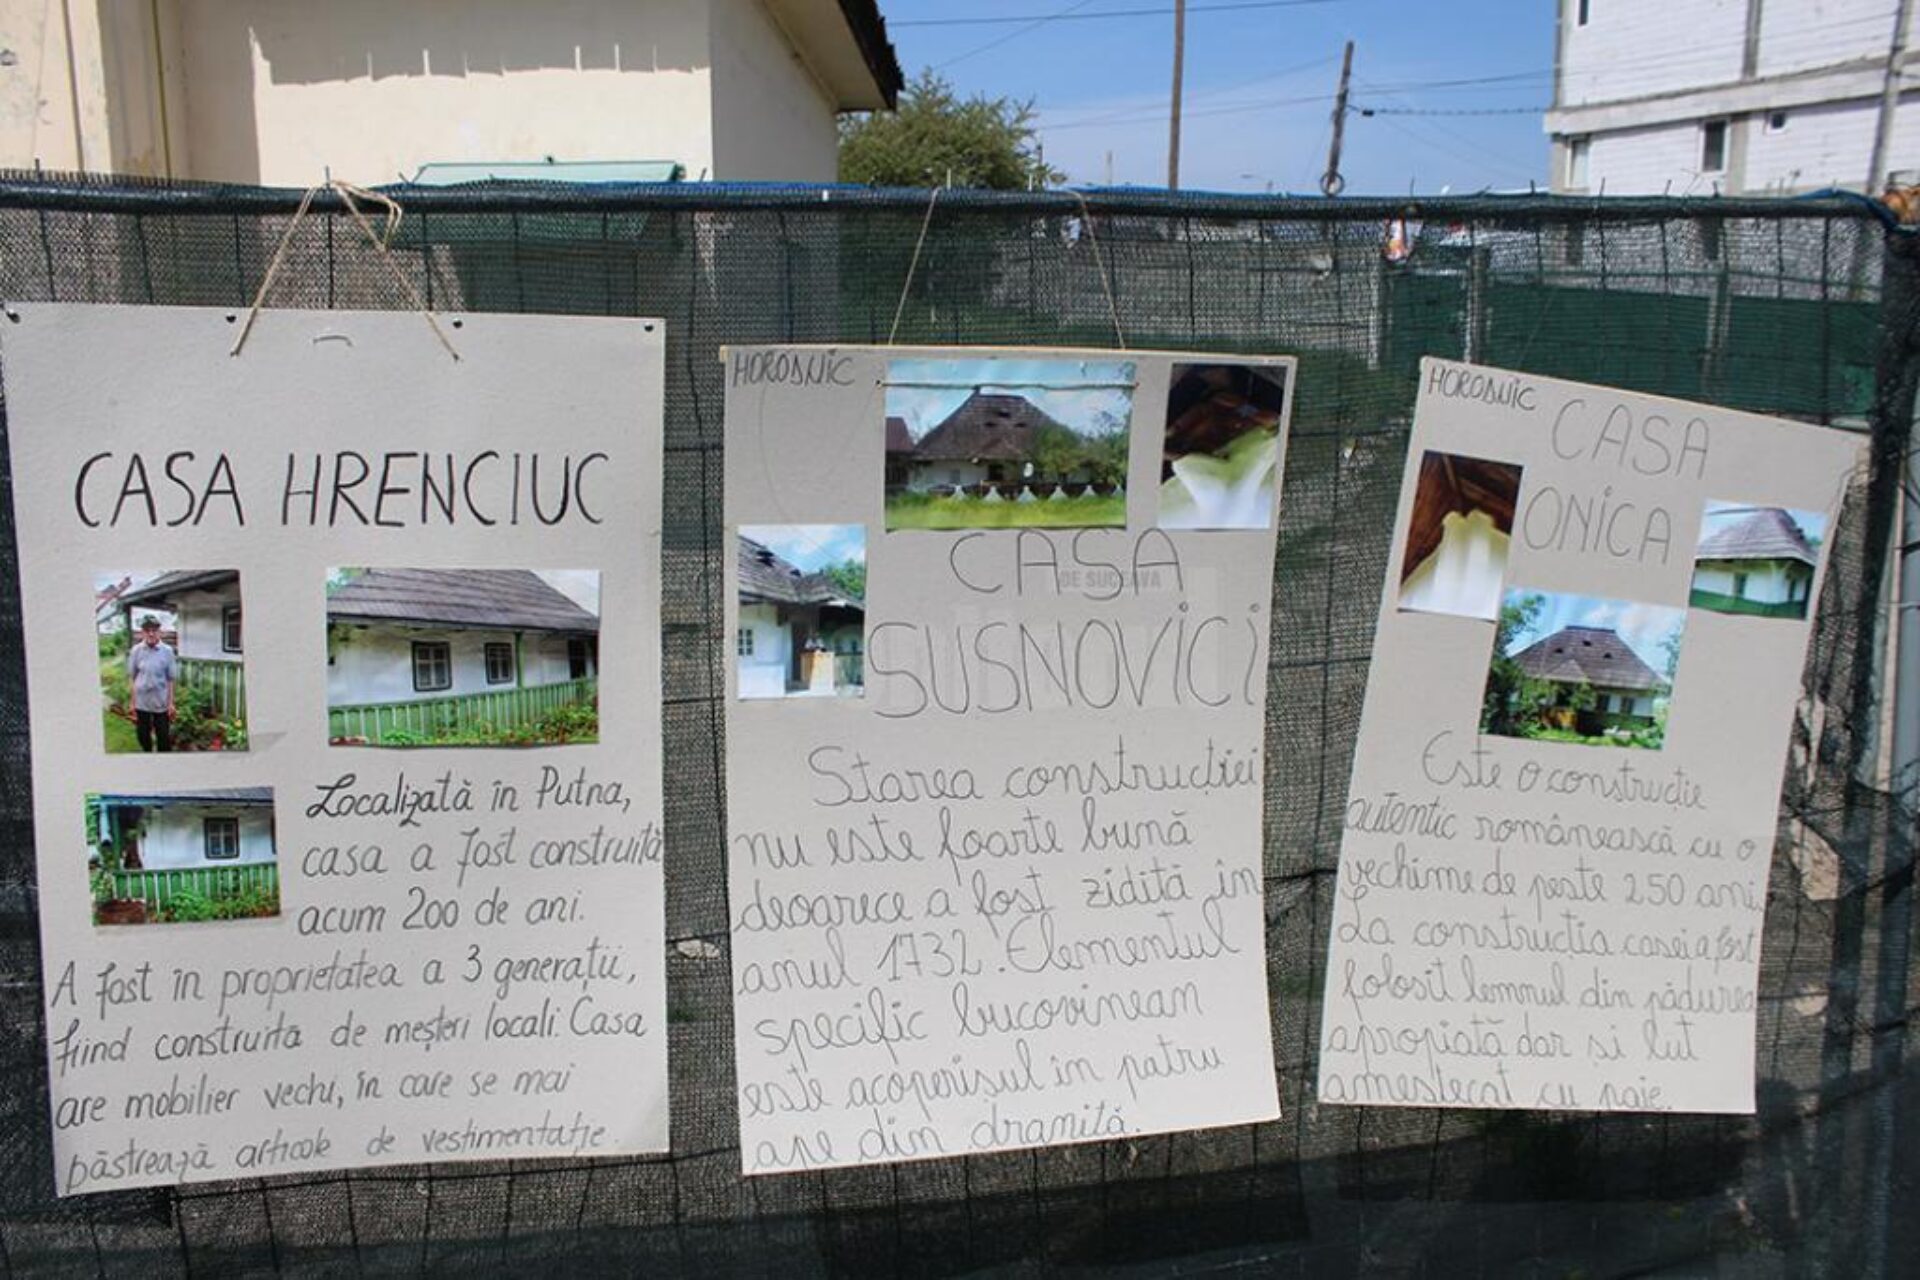 CASA HRENCIUC
Localizată în Putna,
casa a fost construită
acum 200 de ani.
A fost în proprietatea a 3 generații,
fiind construită de meșteri locali. Casa
are mobilier vechi, în care se mai
păstrează articole de vestimentație.
HORODNIC
CASA
DE SUCEAVA
SUSNOVICI
Starea construcției
nu este foarte bună
deoarece a fost zidită în
anul 1732. Elementul
specific bucovinean
este acoperișul în patru
ape din draniță.
HORODNIC
CASA
ONICA
Este o construcție
autentic românească cu o
vechime de peste 250 ani.
La construcția casei a fost
folosit lemnul din pădurea
apropiată dar și lut
amestecat cu paie.